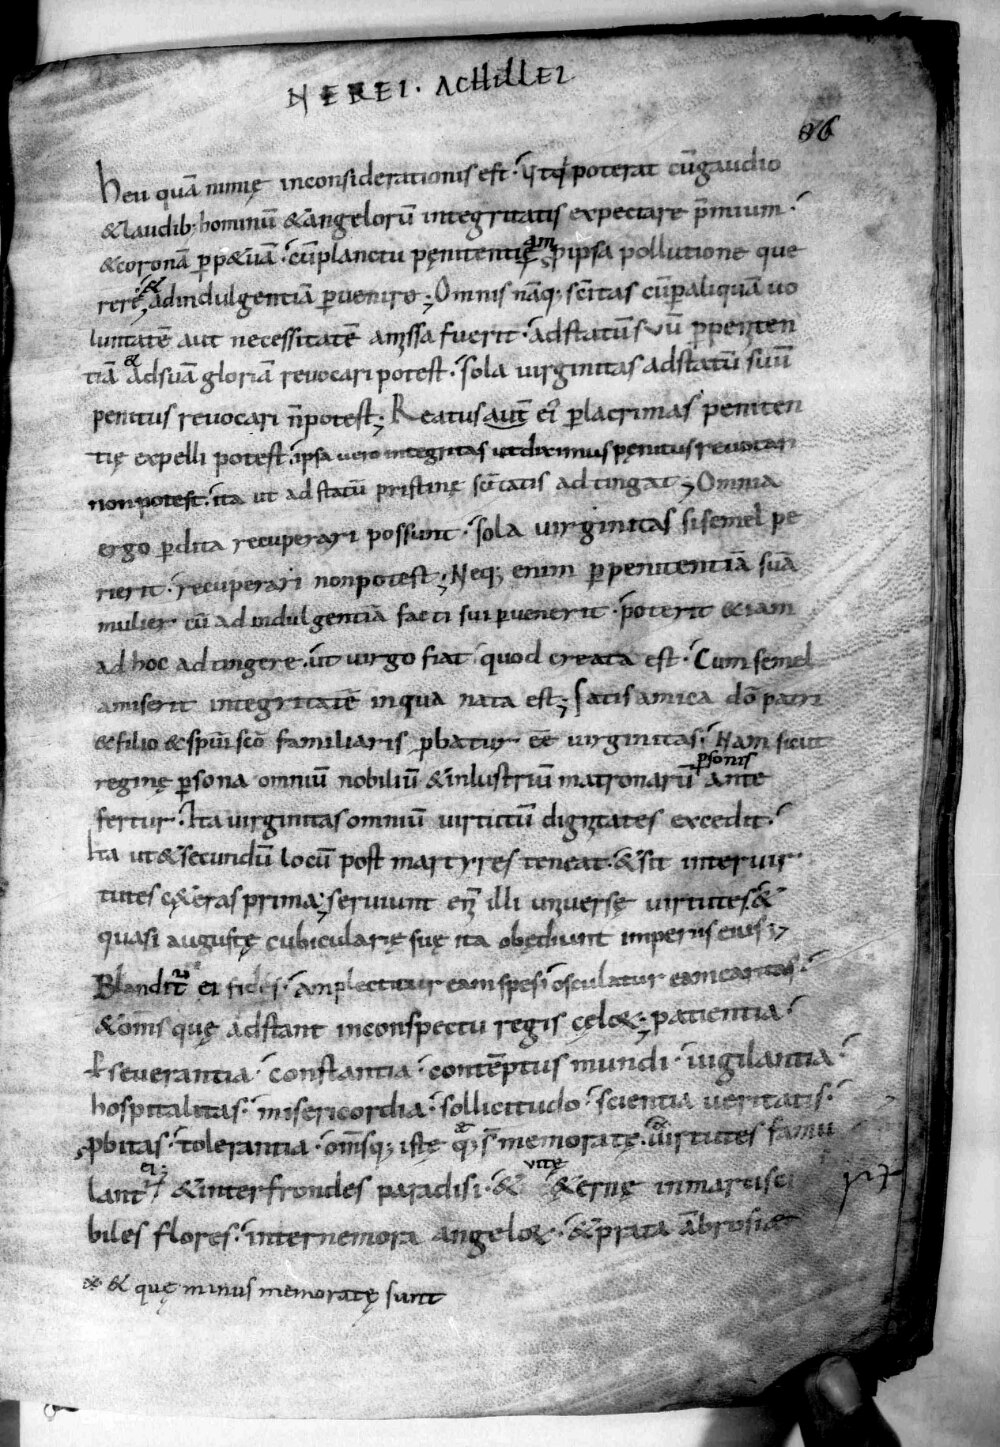 NEREI · ACHILLEI
96
heu quā nimię inconsiderationis est · poterat cū gaudio
& laudib; hominū & angelorū integritatis expectare p̄mium ·
& coronā p̱p&uā · cū planctu pęnitentię p̱ ipsā pollutione que
rere & ad indulgentiā p̱uenire ; Omnis nāq; sc̄itas cū p̱ aliquā uo
luntatē aut necessitatē amissa fuerit · ad statū suū p̱ peniten
tiā & ad suā gloriā reuocari potest · sola uirginitas ad statū suū
penitus reuocari n̄ potest ; Reatus aut̄ ei' p̱ lacrimas peniten
tię expelli potest · ipsa uero integritas ut diximus pęnitus reuocari
non potest · ita ut ad statū pristinę sc̄itatis adtingat ; Omnia
ergo p̱dita recuperari possunt · sola uirginitas si semel pe
rierit · recuperari non potest ; Neq; enim p̱ penitentiā suā
mulier cū ad indulgentiā facti sui p̱uenerit · poterit &iam
ad hoc adtingere · ut uirgo fiat quod creata est · Cum semel
amiserit integritatē in qua nata est ; Satis amica dō patri
& filio & spiū scō familiaris p̱batur eē uirginitas · Nam sicut
reginę p̱sona omniū nobiliū & inlustriū matronarū p̱sonis ante
fertur · Ita uirginitas omniū uirtutū dignitates excedit ·
Ita ut & secundū locū post martyres teneat · & sit inter uir
tutes c&eras prima ; seruiunt eni illi uniuersę uirtutes · &
quasi augustę cubicularię suę ita obędiunt imperiis eius ;
Blandit̄ ei fides · amplectitur eam spes · osculatur eam caritas ·
& om̄s quę adstant in conspectu regis cęloꝝ ; patientia ·
P̱seuerantia · constantia · contēptus mundi · uigilantia ·
hospitalitas · misericordia · sollicitudo · scientia ueritatis ·
p̱bitas · tolerantia · om̄sq; istę q̱ s̄ memoratę · uirtutes famu
lant̄ ei ; & inter frondes paradisi · & uitę &ernę inmarcisci
biles flores · inter nemora angeloꝝ · & prata ābrosiae
& quę minus memoratę sunt